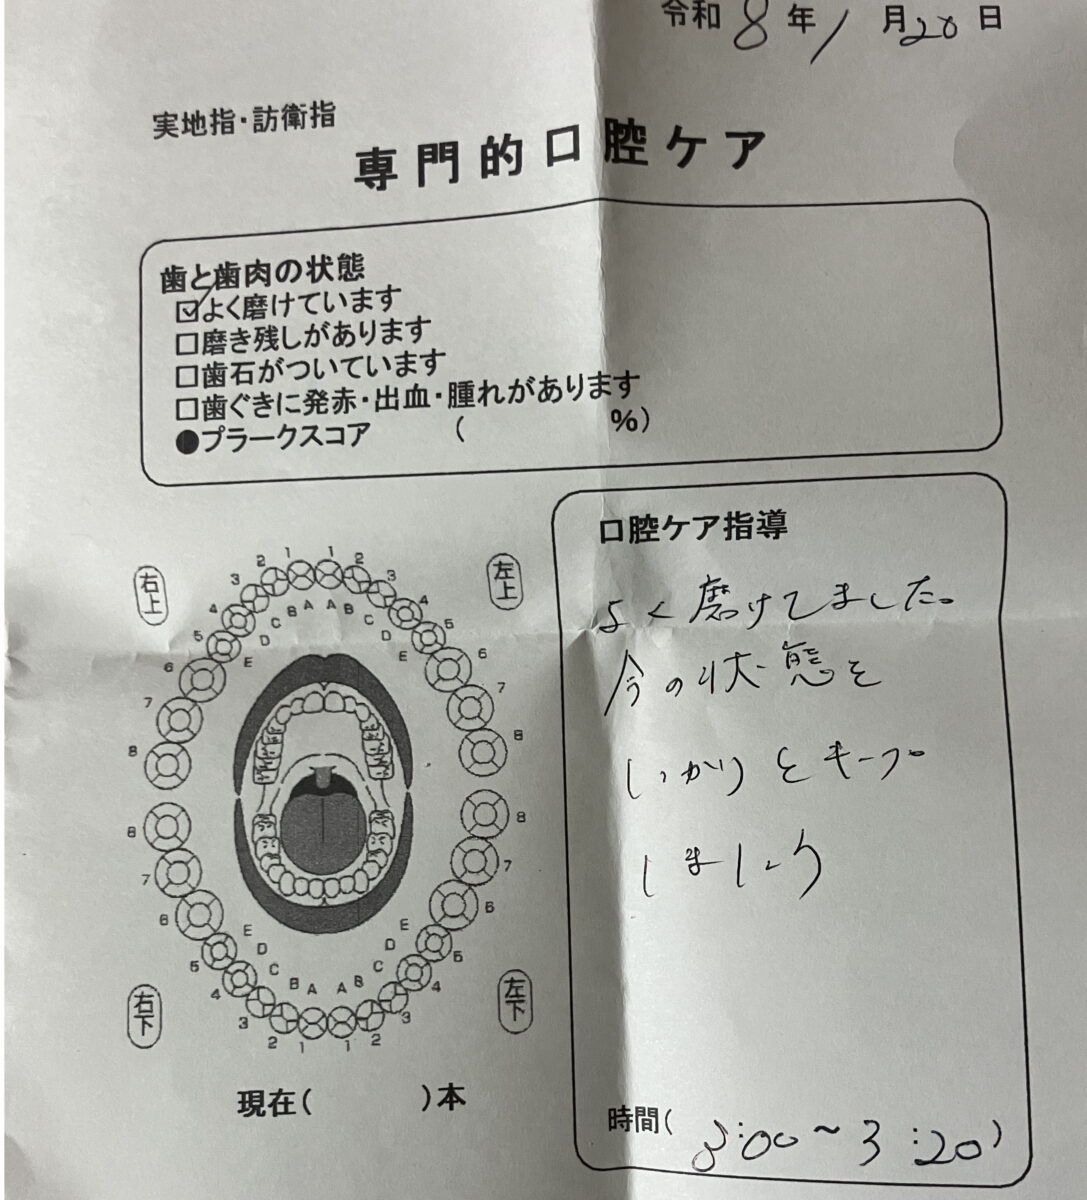 令和 8 年 1 月 20 日
実地指・訪衛指
専門的口腔ケア
歯と歯肉の状態
☑よく磨けています
□磨き残しがあります
□歯石がついています
□歯ぐきに発赤・出血・腫れがあります
●プラークスコア ( %)
口腔ケア指導
よく磨けてました。
今の状態を
しっかりとキープ
しましょう
時間( 3:00〜3:20)
右上
左上
1 1
2 2
3 3
4 4
5 5
6 6
7 7
8 8
A A
B B
C C
D D
E E
8 8
7 7
6 6
5 5
4 4
3 3
2 2
1 1
E E
D D
C C
B B
A A
右下
左下
現在( )本